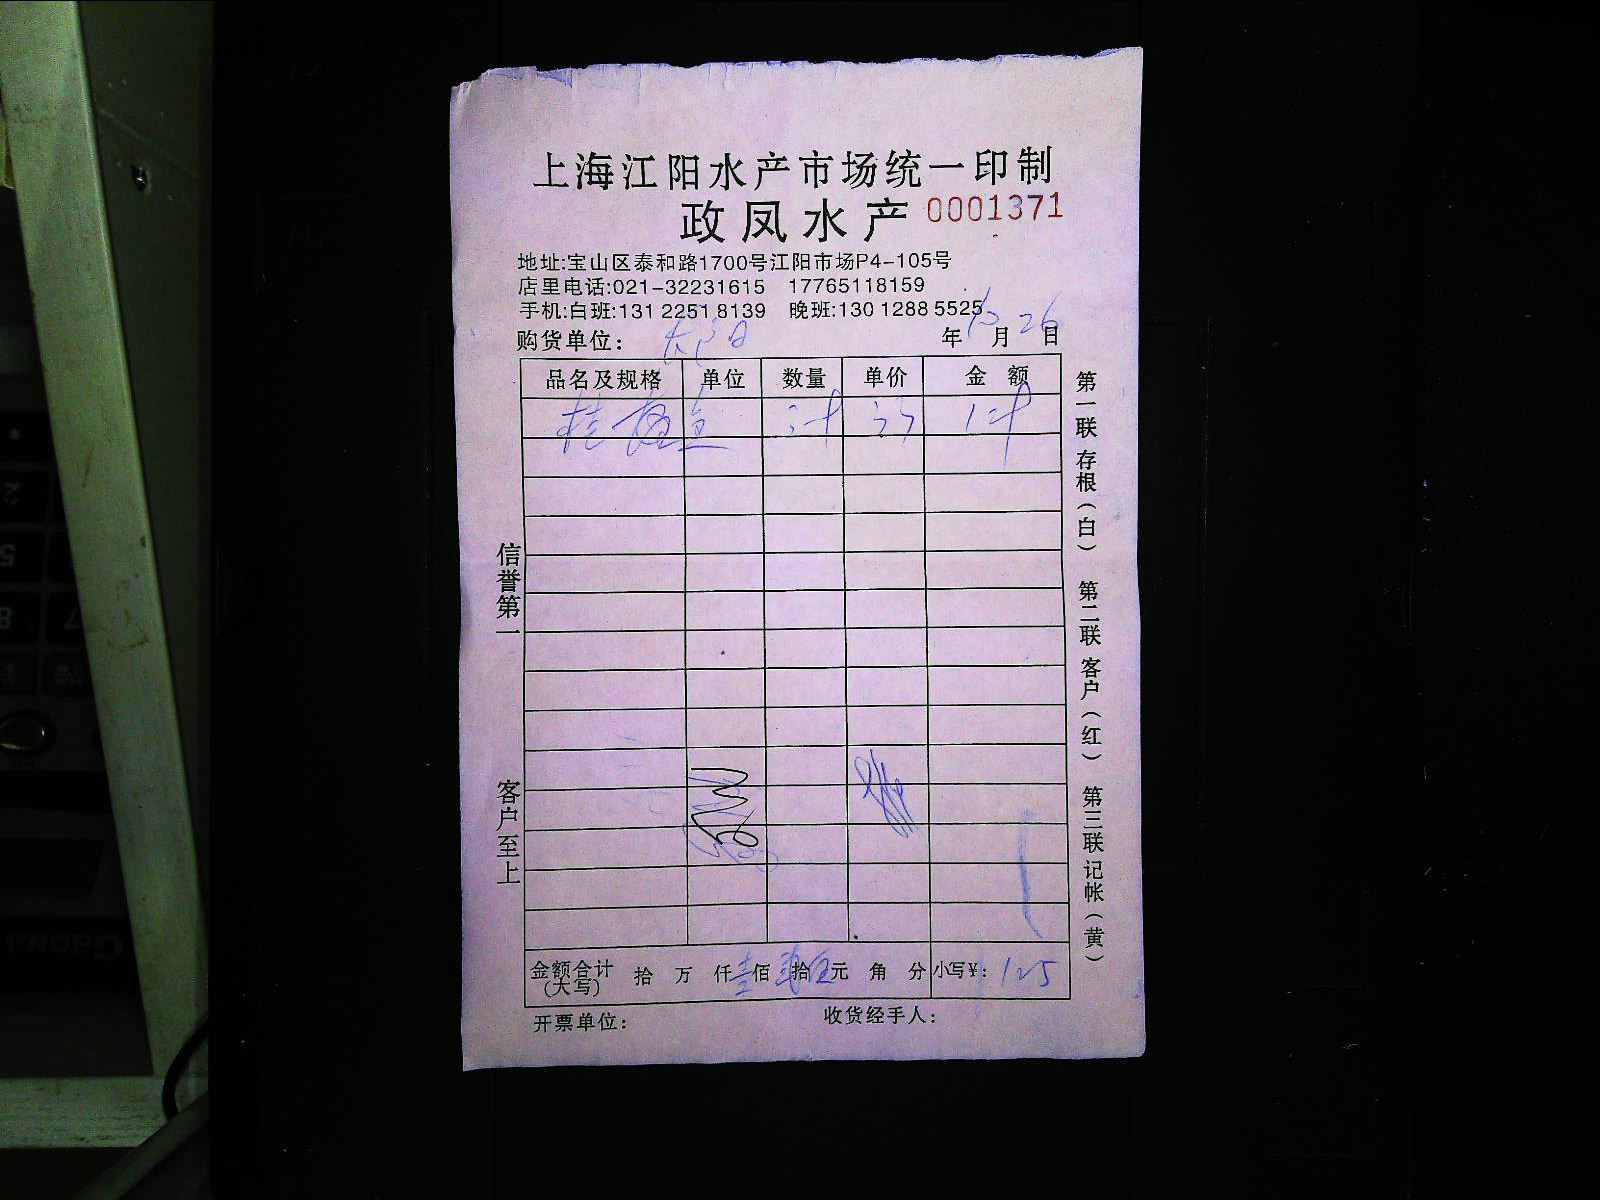 上海江阳水产市场统一印制
政凤水产 0001371
地址:宝山区泰和路1700号江阳市场P4-105号
店里电话:021-32231615 17765118159
手机:白班:131 2251 8139 晚班:130 1288 5525
购货单位： 年 月 26 日
品名及规格 单位 数量 单价 金 额
桂 鱼
金额合计(大写) 拾 万 仟 壹 佰 拾 伍 元 角 分 小写¥: 125
开票单位： 收货经手人：
信誉第一
客户至上
第一联 存根（白） 第二联 客户（红） 第三联 记帐（黄）